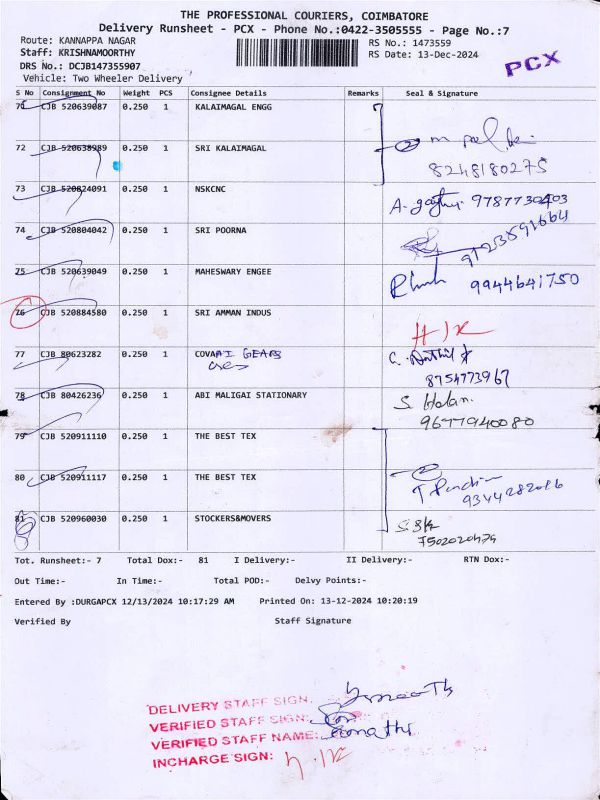 THE PROFESSIONAL COURIERS, COIMBATORE
Delivery Runsheet - PCX - Phone No.:0422-3505555 - Page No.:7
Route: KANNAPPA NAGAR RS No.: 1473559
Staff: KRISHNAMOORTHY RS Date: 13-Dec-2024
PCX
DRS No.: DCJB147355907
Vehicle: Two Wheeler Delivery
S No Consignment No Weight PCS Consignee Details Remarks Seal & Signature
71 CJB 520639087 0.250 1 KALAIMAGAL ENGG
72 CJB 520638989 0.250 1 SRI KALAIMAGAL
8248180275
73 CJB 520824091 0.250 1 NSKCNC
9787730403
74 CJB 520804042 0.250 1 SRI POORNA
9123591664
75 CJB 520639049 0.250 1 MAHESWARY ENGEE
9944641750
76 CJB 520884580 0.250 1 SRI AMMAN INDUS
77 CJB 80623282 0.250 1 COVAAI GEARS
8754773967
78 CJB 80426236 0.250 1 ABI MALIGAI STATIONARY
9677940080
79 CJB 520911110 0.250 1 THE BEST TEX
80 CJB 520911117 0.250 1 THE BEST TEX
81 CJB 520960030 0.250 1 STOCKERS&MOVERS
Tot. Runsheet:- 7 Total Dox:- 81 I Delivery:- II Delivery:- RTN Dox:-
Out Time:- In Time:- Total POD:- Delvy Points:-
Entered By :DURGAPCX 12/13/2024 10:17:29 AM Printed On: 13-12-2024 10:20:19
Verified By Staff Signature
DELIVERY STAFF SIGN:
VERIFIED STAFF SIGN:
VERIFIED STAFF NAME:
INCHARGE SIGN: